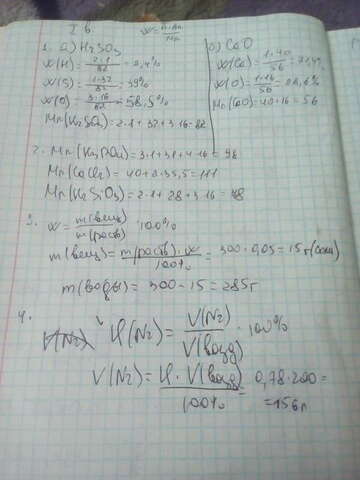 I в. w = n·Ar / Mr
1. a) H₂SO₃
w(H) = 2·1 / 82 = 2,4%
w(S) = 1·32 / 82 = 39%
w(O) = 3·16 / 82 = 58,5%
Mr(H₂SO₃) = 2·1 + 32 + 3·16 = 82
б) CaO
w(Ca) = 1·40 / 56 = 71,4%
w(O) = 1·16 / 56 = 28,6%
Mr(CaO) = 40 + 16 = 56
2. Mr(H₃PO₄) = 3·1 + 31 + 4·16 = 98
Mr(CaCl₂) = 40 + 2·35,5 = 111
Mr(H₂SiO₃) = 2·1 + 28 + 3·16 = 78
3. w = m(вещ) / m(раств) · 100%
m(вещ) = m(раств)·w / 100% = 300·0,05 = 15 г (соли)
m(воды) = 300 - 15 = 285 г
4. V(N₂) φ(N₂) = V(N₂) / V(возд) · 100%
V(N₂) = φ·V(возд) / 100% = 0,78·200 =
= 156 л